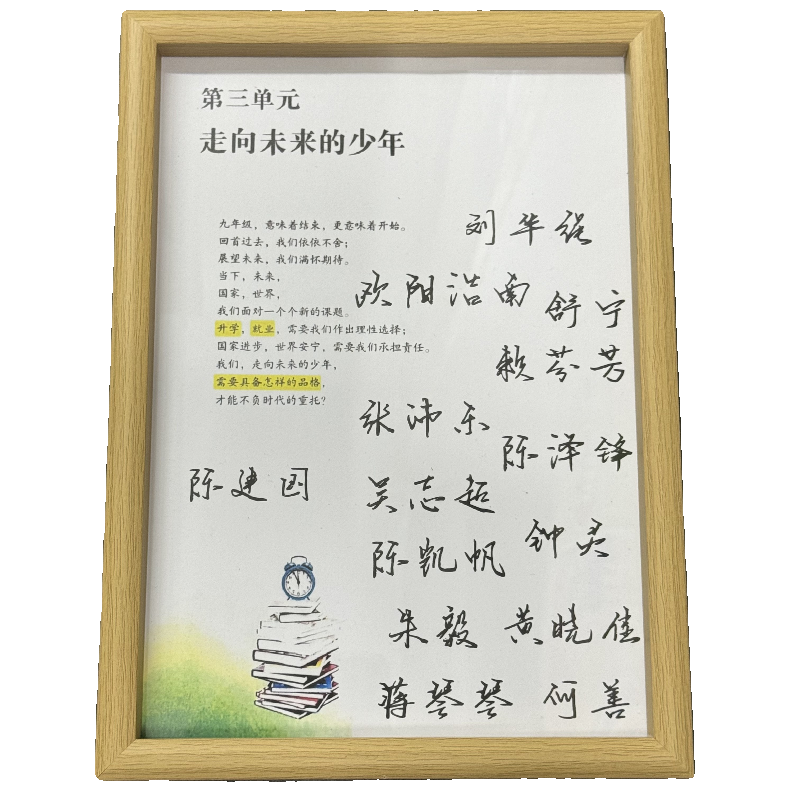 第三单元
走向未来的少年
九年级，意味着结束，更意味着开始。
回首过去，我们依依不舍；
展望未来，我们满怀期待。
当下，未来，
国家，世界，
我们面对一个个新的课题。
升学，就业，需要我们作出理性选择；
国家进步，世界安宁，需要我们承担责任。
我们，走向未来的少年，
需要具备怎样的品格，
才能不负时代的重托？
刘华强
欧阳浩南
舒宁
赖芬芳
张沛乐
陈泽锋
陈建国
吴志超
钟灵
陈凯帆
朱毅
黄晓佳
蒋琴琴
何善